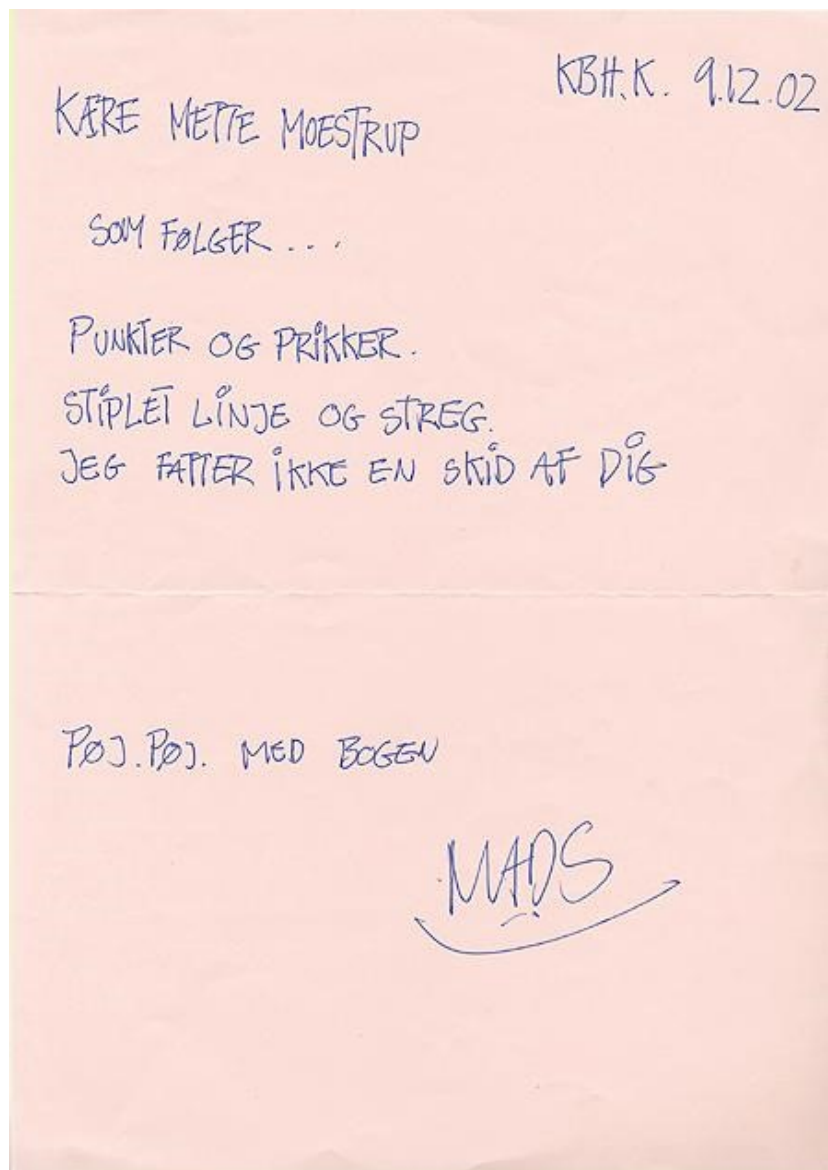 KBH.K. 9.12.02
KÆRE METTE MOESTRUP
SOM FØLGER ...
PUNKTER OG PRIKKER.
STIPLET LINJE OG STREG.
JEG FATTER IKKE EN SKID AF DIG
PØJ.PØJ. MED BOGEN
MADS